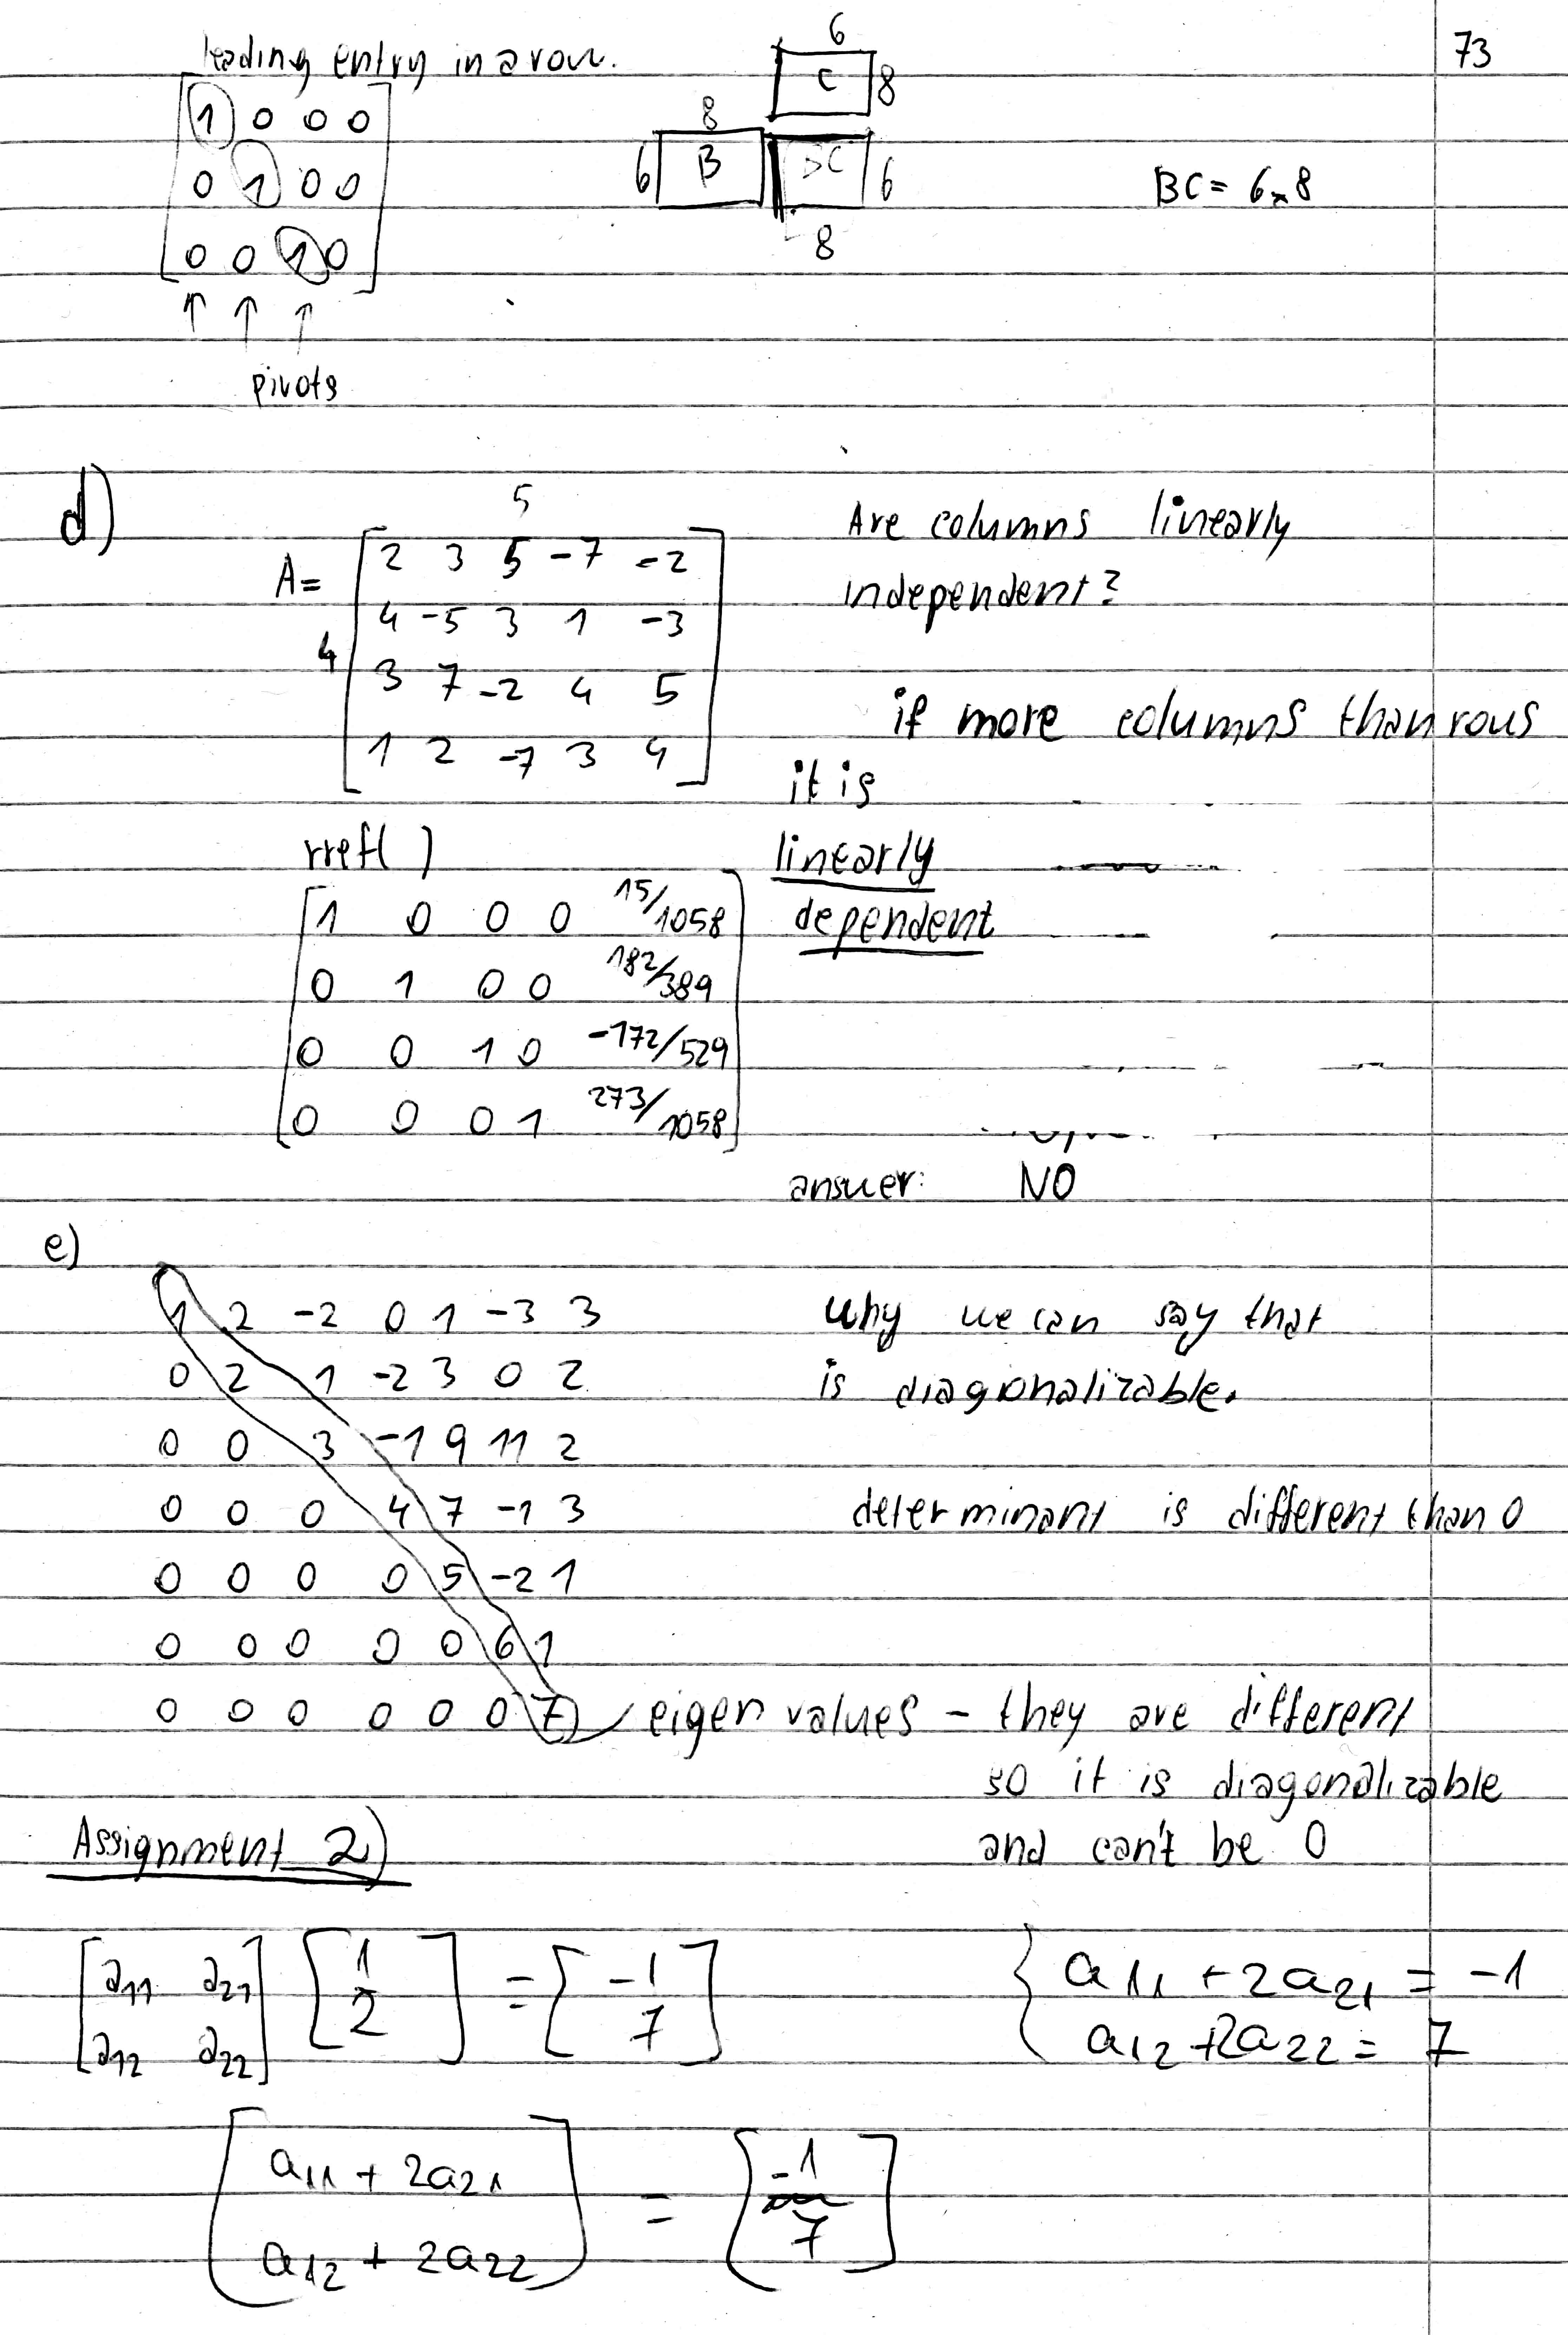 73
leading entry in a row.
1 0 0 0
0 1 0 0
0 0 1 0
pivots
6
C 8
8
6 B BC 6
8
BC = 6x8
d)
5
A=
4
2 3 5 -7 -2
4 -5 3 1 -3
3 7 -2 4 5
1 2 -7 3 4
Are columns linearly
independent?
if more columns than rows
it is
linearly
dependent
rref( )
1 0 0 0 15/1058
0 1 0 0 182/389
0 0 1 0 -172/529
0 0 0 1 273/1058
answer: NO
e)
1 2 -2 0 1 -3 3
0 2 1 -2 3 0 2
0 0 3 -1 9 11 2
0 0 0 4 7 -1 3
0 0 0 0 5 -2 1
0 0 0 0 0 6 1
0 0 0 0 0 0 7
why we can say that
is diagonalizable.
determinant is different than 0
eigen values - they are different
so it is diagonalizable
and can't be 0
Assignment 2)
a11 a21
a12 a22
1
2
=
-1
7
a11 + 2a21 = -1
a12 + 2a22 = 7
a11 + 2a21
a12 + 2a22
=
-1
7